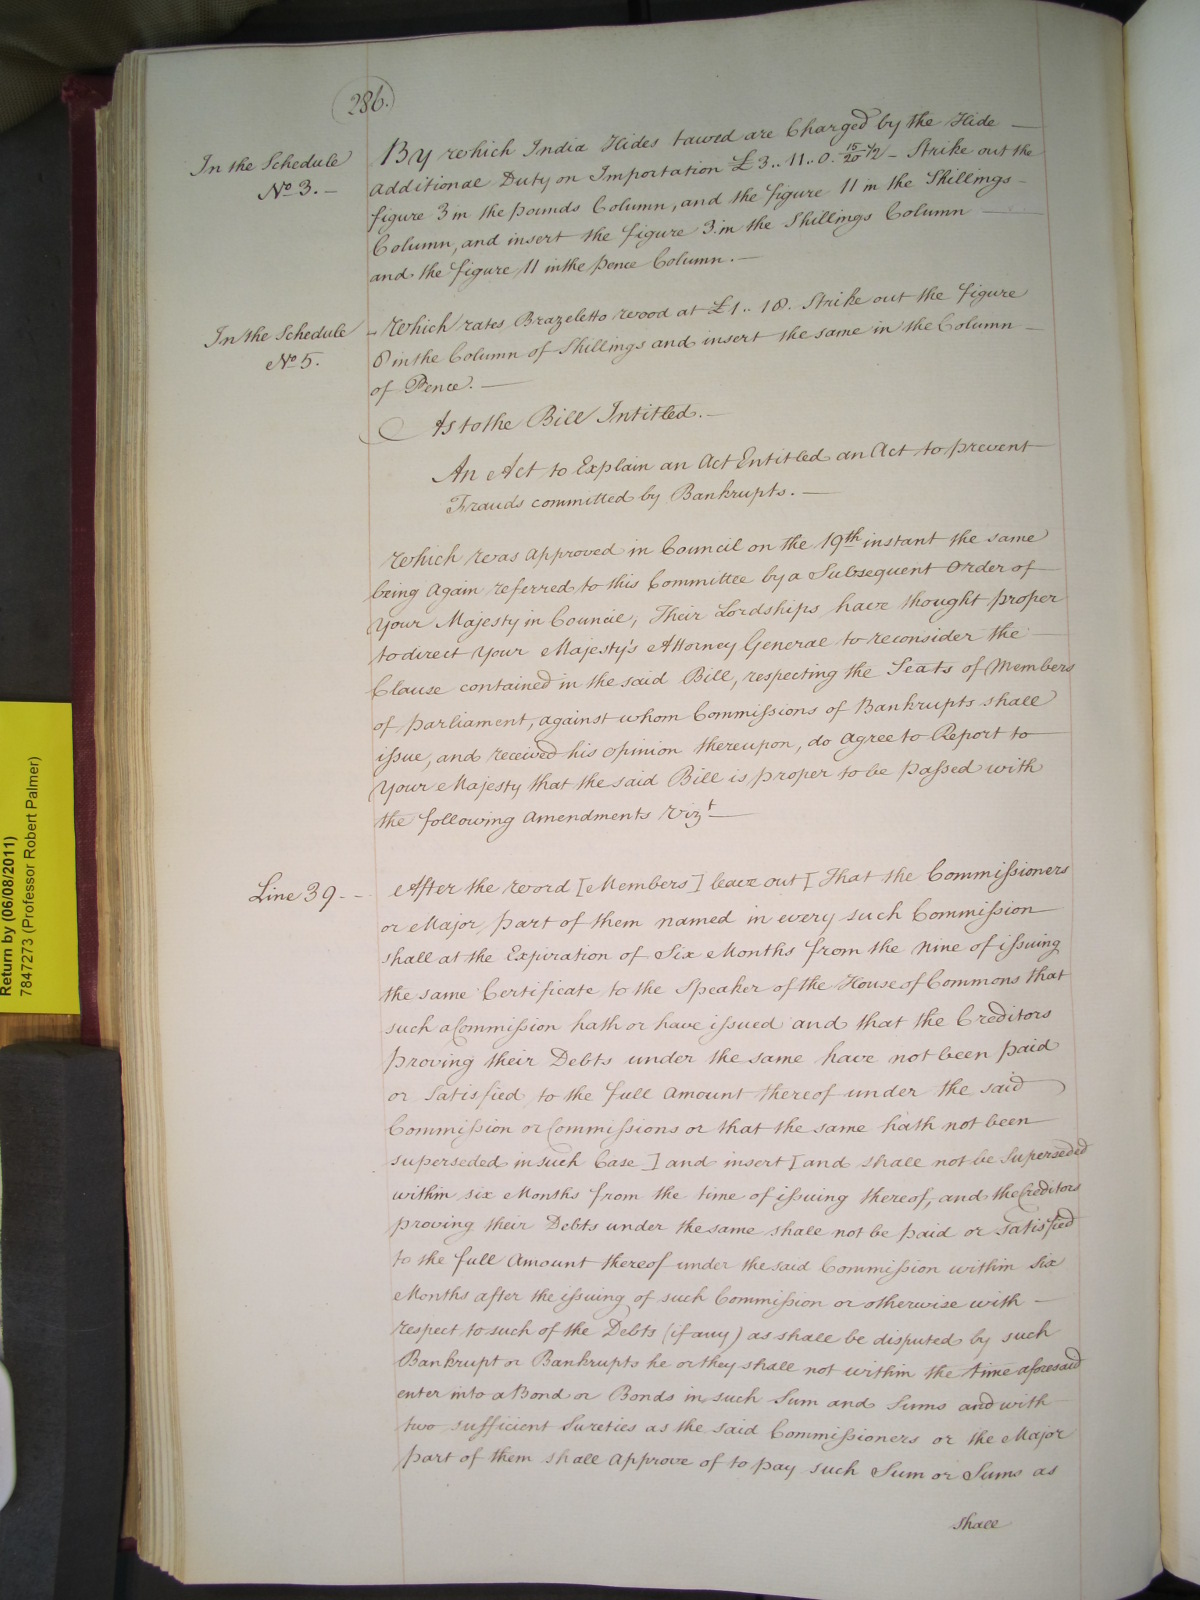 286.
In the Schedule
No 3. —
By which India Hides tawed are Charged by the Hide —
additional Duty on Importation £3..11..0. 15/20 ½ – Strike out the
figure 3 in the pounds Column, and the figure 11 in the Shillings –
Column, and insert the figure 3 in the Shillings Column —
and the figure 11 in the pence Column. —
In the Schedule
No 5.
– Which rates Brazeletto wood at £1.. 18. Strike out the figure
8 in the Column of Shillings and insert the same in the Column –
of Pence. —
As to the Bill Intitled. —
An Act to Explain an Act Entitled an Act to prevent
Frauds committed by Bankrupts. —
Which was approved in Council on the 19th instant the same
being again referred to this Committee by a Subsequent Order of
Your Majesty in Council, Their Lordships have thought proper
to direct Your Majesty's Attorney General to reconsider the –
Clause contained in the said Bill, respecting the Seats of Members
of parliament, against whom Commissions of Bankrupts shall
issue, and received his opinion thereupon, do agree to Report to
Your Majesty that the said Bill is proper to be passed with
the following amendments Vizt —
Line 39 - -
After the word [Members] leave out [That the Commissioners
or Major part of them named in every such Commission
shall at the Expiration of Six Months from the nine of issuing
the same Certificate to the Speaker of the House of Commons that
such a Commission hath or have issued and that the Creditors
proving their Debts under the same have not been paid
or Satisfied to the full amount thereof under the said
Commission or Commissions or that the same hath not been
superseded in such Case] and insert [and shall not be Superseded
within six Months from the time of issuing thereof, and the Creditors
proving their Debts under the same shall not be paid or satisfied
to the full Amount thereof under the said Commission within six
Months after the issuing of such Commission or otherwise with –
respect to such of the Debts (if any) as shall be disputed by such
Bankrupt or Bankrupts he or they shall not within the time aforesaid
enter into a Bond or Bonds in such Sum and Sums and with
two sufficient Sureties as the said Commissioners or the Major
part of them shall approve of to pay such Sum or Sums as
shall
Return by (06/08/2011)
7847273 (Professor Robert Palmer)